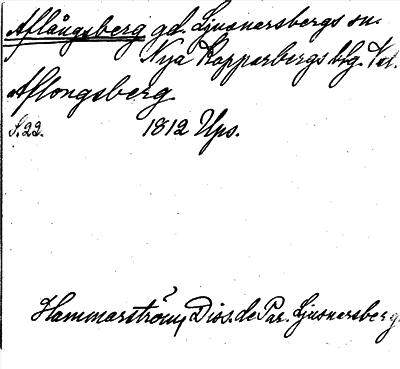 Aflångsberg gd. Ljusnarsbergs sn.
Nya Kopparbergs blg. Vst.
Aflongsberg
S. 22. 1812 Ups.
Hammarström, Diss. de Par. Ljusnersberg.